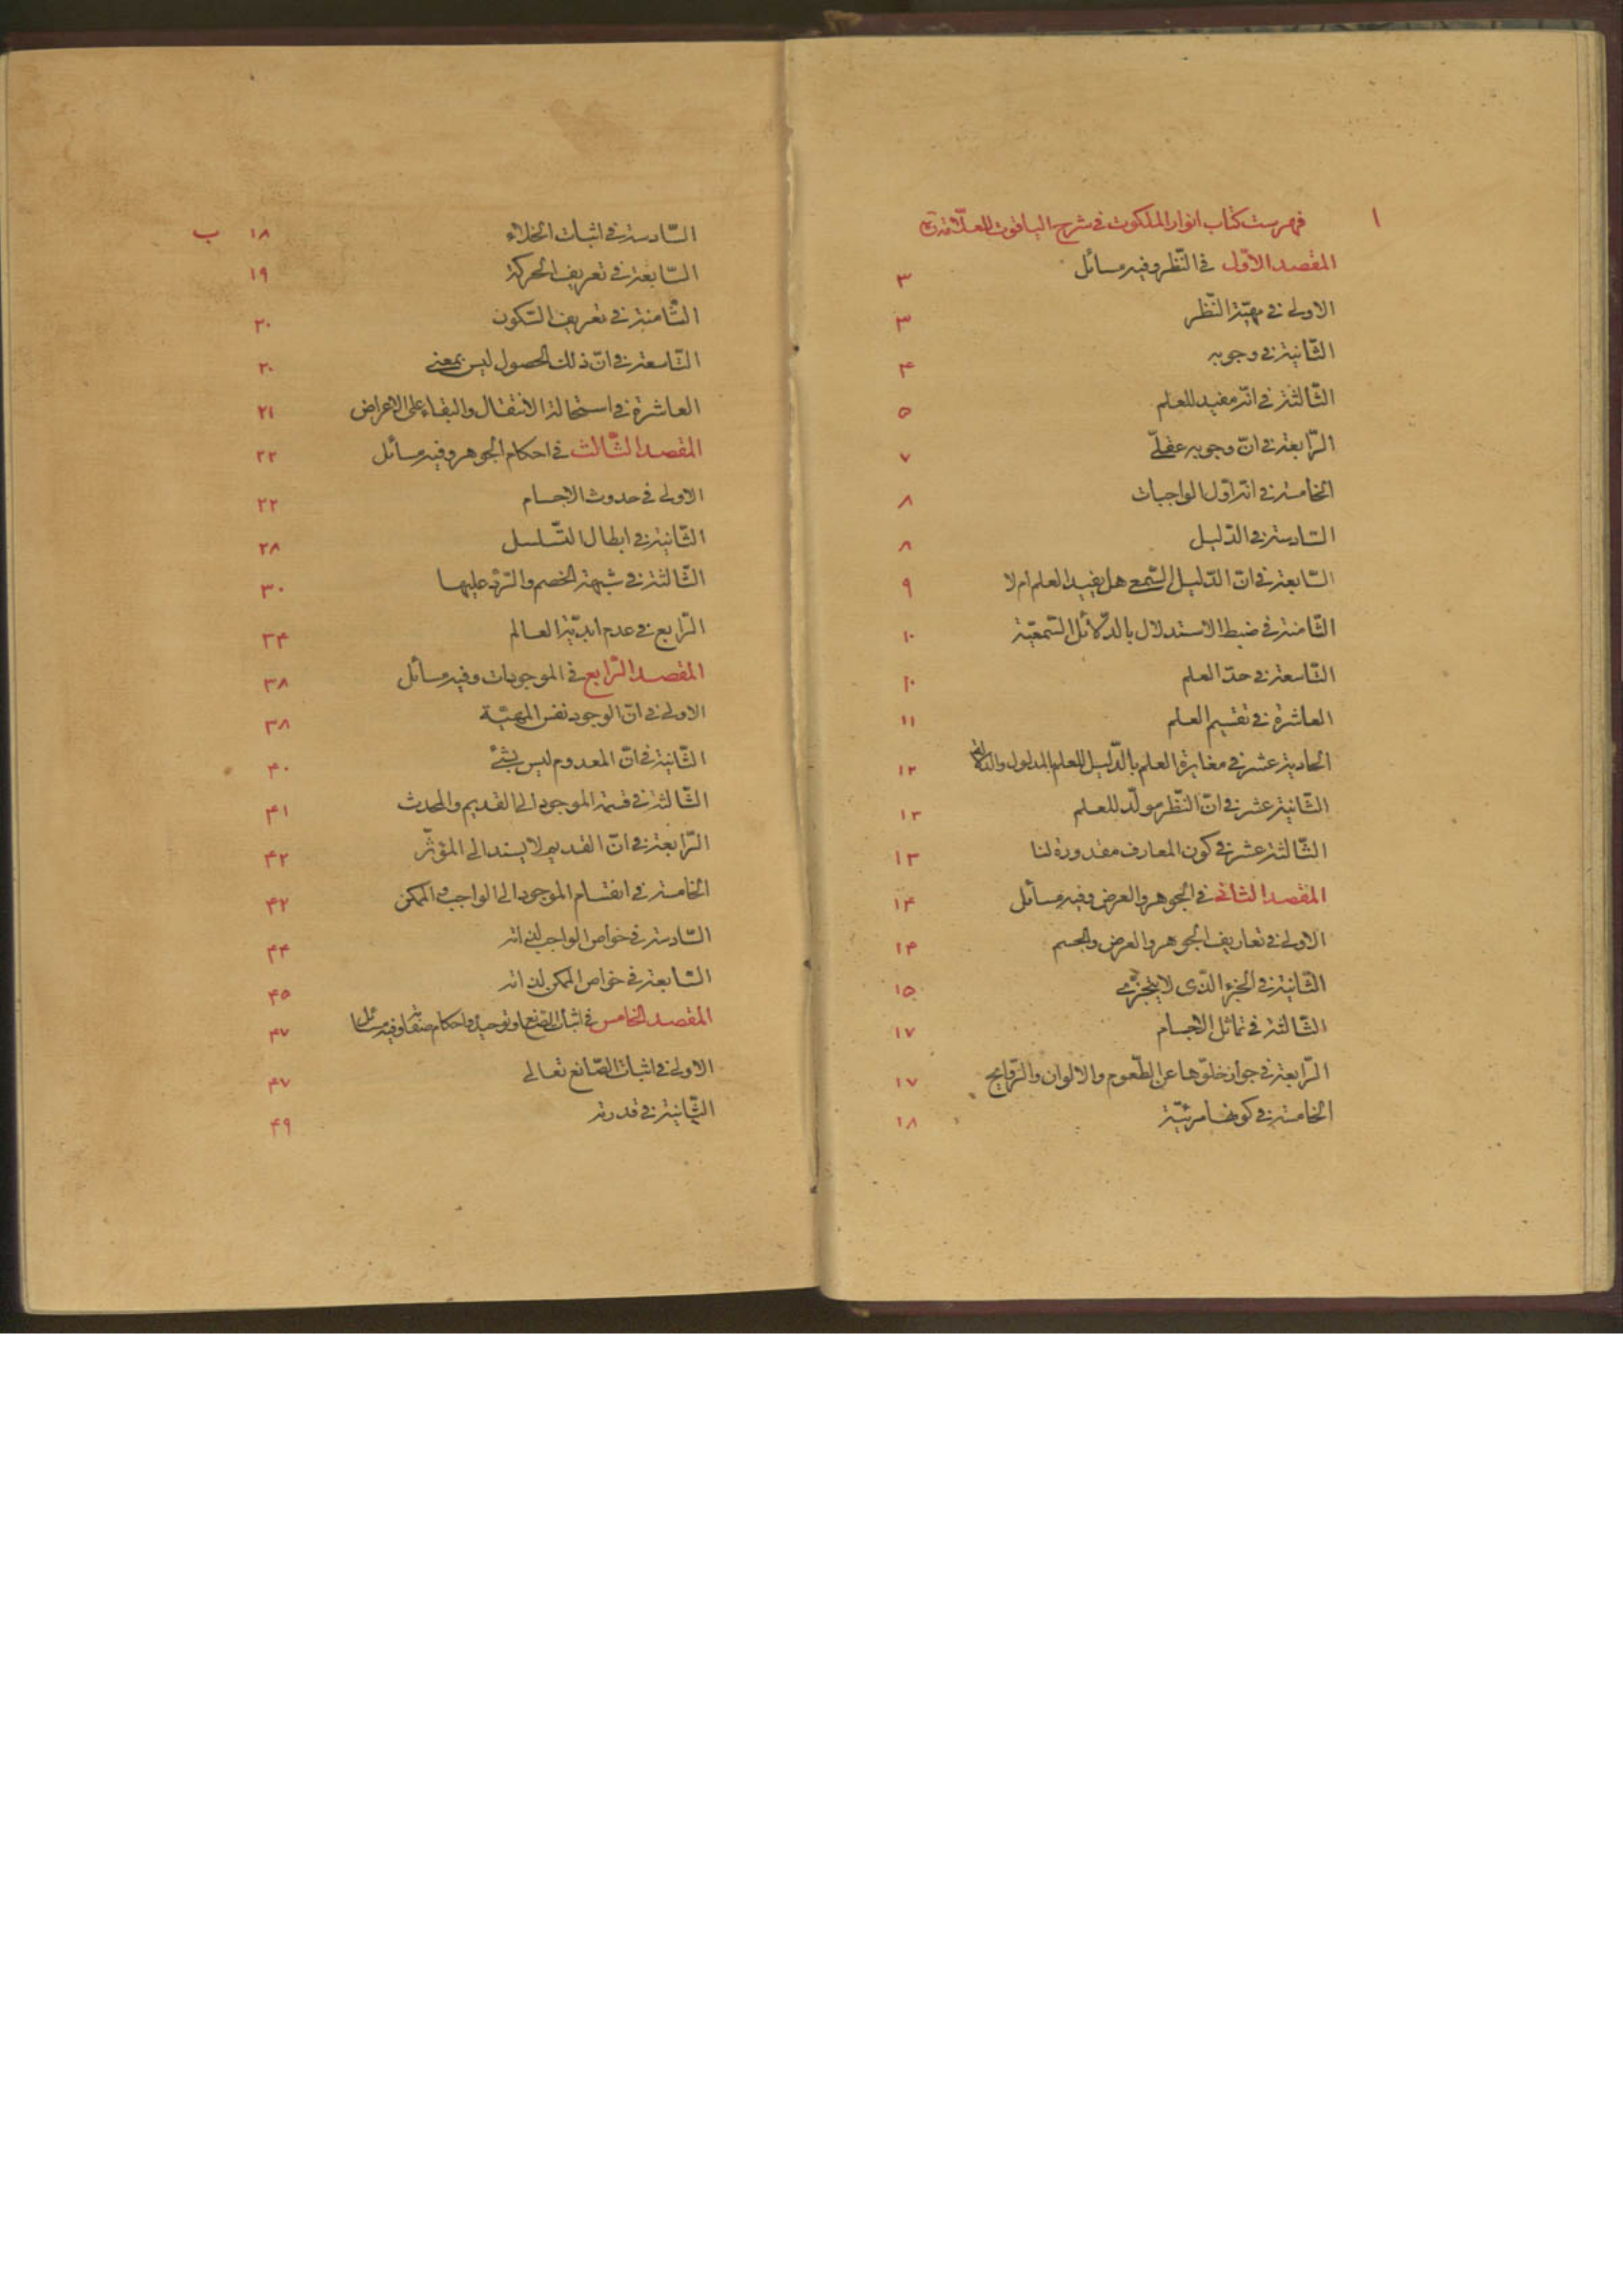 ا فهرست كتاب انوار الملكوت في شرح الياقوت للعلّامة
المقصد الاوّل في النّظر وفيه مسائل ۳
الاولى في مهيّة النّظر ۳
الثّانية في وجوبه ۴
الثّالثة في انّه مفيد للعلم ۵
الرّابعة في انّ وجوبه عقلّي ۷
الخامسة في انّه اوّل الواجبات ۸
السّادسة في الدّليل ۸
السّابعة في انّ الدّليل السّمعي هل يفيد العلم ام لا ۹
الثّامنة في ضبط الاستدلال بالدّلائل السّمعيّة ۱۰
التّاسعة في حدّ العلم ۱۰
العاشرة في تقسيم العلم ۱۱
الحادية عشر في مغايرة العلم بالدّليل للعلم بالمدلول والدلالة ۱۲
الثّانية عشر في انّ النّظر مولّد للعلم ۱۳
الثّالثة عشر في كون المعارف مقدورة لنا ۱۳
المقصد الثّاني في الجوهر والعرض وفيه مسائل ۱۴
الاولى في تعاريف الجوهر والعرض والجسم ۱۴
الثّانية في الجزء الّذى لا يتجزّى ۱۵
الثّالثة في تماثل الاجسام ۱۷
الرّابعة في جواز خلوّها عن الطّعوم والالوان والرّوايح ۱۷
الخامسة في كونها مرئيّة ۱۸
السّادسة في اثبات الخلاء ۱۸ ب
السّابعة في تعريف الحركة ۱۹
الثّامنة في تعريف السّكون ۲۰
التّاسعة في انّ ذلك الحصول ليس بمعنى ۲۰
العاشرة في استحالة الانتقال والبقاء على الاعراض ۲۱
المقصد الثّالث في احكام الجوهر وفيه مسائل ۲۲
الاولى في حدوث الاجسام ۲۲
الثّانية في ابطال التّسلسل ۲۸
الثّالثة في شبهة الخصم والرّدّ عليها ۳۰
الرّابع في عدم ابديّة العالم ۳۴
المقصد الرّابع في الموجودات وفيه مسائل ۳۸
الاولى في انّ الوجود نفس المهيّة ۳۸
الثّانية في انّ المعدوم ليس بشئ ۴۰
الثّالثة في قسمة الموجود الى القديم والمحدث ۴۱
الرّابعة في انّ القديم لا يستند الى المؤثّر ۴۲
الخامسة في انقسام الموجود الى الواجب والممكن ۴۲
السّادسة في خواص الواجب لذاته ۴۴
السّابعة في خواص الممكن لذاته ۴۵
المقصد الخامس في اثبات الصّانع وتوحيده واحكام صفاته وفيه مسائل ۴۷
الاولى في اثبات الصّانع تعالى ۴۷
الثّانية في قدرته ۴۹